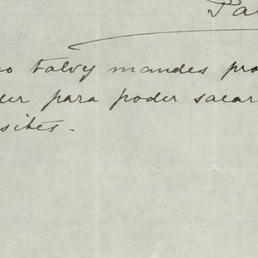 Pa
no talvy mandes pro
der para poder sacar
sites.